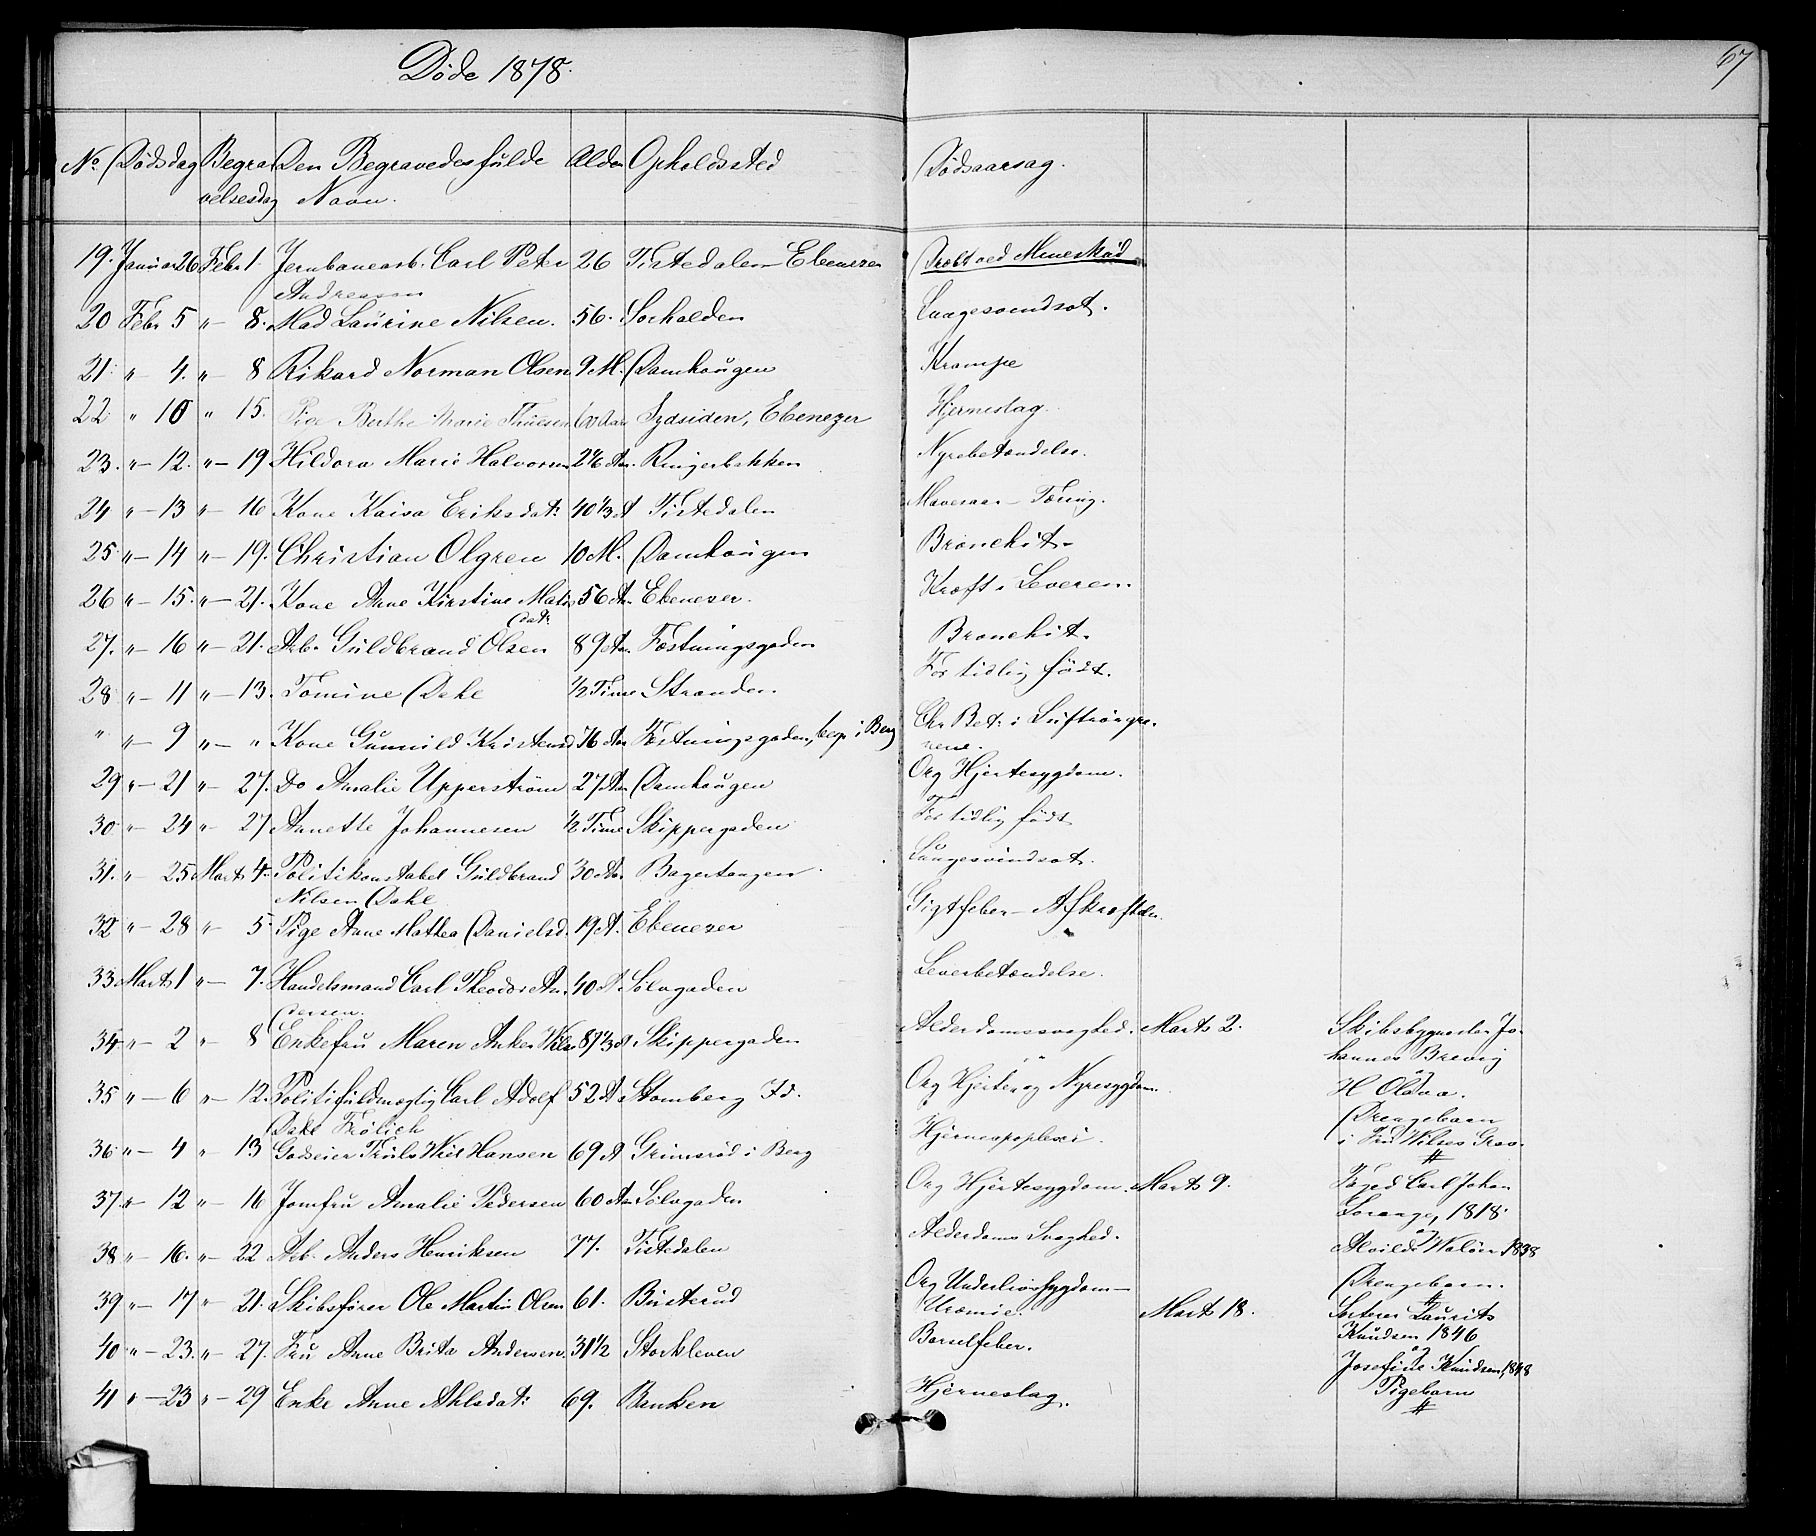 Døde 1878.
67
No Dødsdag Begra- Den Begravedes fulde Alder Opholdssted Dødsaarsag.
velsesdag Navn.
19. Januar 26 Febr 1. Jernbanearb. Carl Peter 26 Tistedalen Ebenezer Dræbt ved Mineskud
Andreassen
20 Febr 5 " 8. Mad Laurine Nilsen. 56. Sorhalden Lungesvindsot.
21. " 4. " 8 Rikard Norman Olsen 9 M. Damhaugen Krampe
22 " 10 " 15. Pige Berthe Marie Thuesen 60 Aar Sydsiden, Ebenezer Hjerneslag.
23. " 12. " 19 Hildora Marie Halvorsen Ringerbakken Nyrebetændelse.
24 " 13 " 16 Kone Kaisa Eriksdat: 40 1/3 A Tistedalen Mavesaar - Tæring.
25 " 14 " 19. Christian Olgren 10 M. Damhaugen Bronchit
26 " 15. " 21. Kone Anne Kirstine Mats 56 Aar Ebenezer. Kræft i Leveren.
dat:
27. " 16 " 21. Arb. Guldbrand Olsen 89 Aar Fæstningsgaden Bronchit.
28 " 11 " 13. Tomine Dahl 1/2 Time Stranden. For tidlig født.
" " 9 " " Kone Gunnild Kristensd 76 Aar Fæstningsgaden, begr i Berg Chr Bet. i Luftrørgre-
nene.
29 " 21 " 27. Do Amalie Upperstrøm 27 Aar Damhaugen Org Hjertesygdom.
30 " 24 " 27 Annette Johannesen 1/2 Time Skippergaden For tidlig født
31. " 25 Marts 4. Politikonstabel Guldbrand 30 Aar Bagertangen Lungesvindsot.
Nilsen Dahl
32 " 28 " 5 Pige Anne Mathea Danielsd. 19 A. Ebenezer Gigtfeber - Afkræftelse.
33 Marts 1 " 7. Handelsmand Carl Theodor An- 40 A Sølvgaden Leverbetændelse.
dersen.
34 " 2 " 8 Enkefru Maren Anker 87 1/3 A Skippergaden Alderdomssvaghed. Marts 2. Skibsbygmester Jo-
hannes Brevig
35 " 6 " 12. Politifuldmægtig Carl Adolf 52 A Stomberg Id. Org Hjerte og Nyresygdom. og
H Olava.
Dahl Frølich Drengebarn
36 " 4 " 13 Gaardeier Truls Wiel Hansen 69 A Grimsrød i Berg Hjerneapoplexi. i Fru Wilses Grav
37. " 12 " 16 Jomfru Amalie Pedersen 60 Aar Sølvgaden Org Hjertesygdom. Marts 9. Foged Carl Johan
Lorange, 1818.
og
38 " 16. " 22 Arb. Anders Henriksen 77. Tistedalen Alderdoms Svaghed. Alvilde Waløer 1838
39 " 17 " 21. Skibsfører Ole Martin Olsen 61. Busterud Org Underlivssygdom - Drengebarn.
Uræmie. Marts 18. Laurits
40 " 23. " 27. Fru Anne Brita Andersen. 31 1/2 Storkleven Barselfeber. Knudsen 1846
og
Josefine Knudsen, 1848
41 " 23 " 29 Enke Anne Ahlsdat: 69. Banken Hjerneslag. Pigebarn